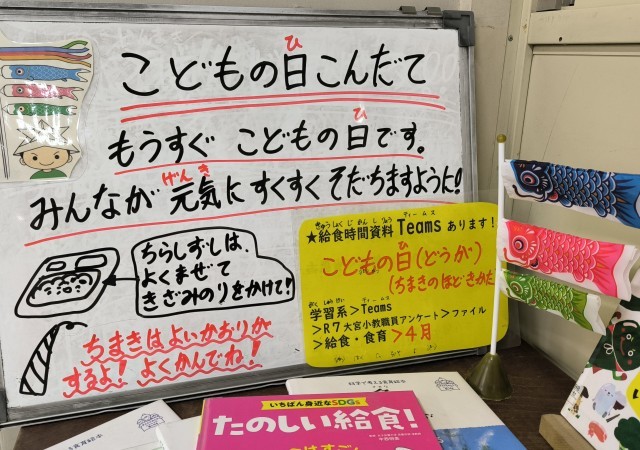 こどもの日こんだて
ひ
もうすぐ こどもの日です。
ひ
みんなが 元気に すくすく そだちますように!
げんき
ちらしずしは、
よくまぜて
きざみのりをかけて!
ちまきはよいかおりが
するよ! よくかんでね!
きゅうしょくじかんしりょう ティームス
★給食時間資料 Teams あります!
ひ
こどもの日(どうが)
(ちまきのほどきかた
ティームス
学習系>Teams
>R7 大宮小教職員アンケート>ファイル
>給食・食育>4月
いちばん身近なSDGs
たのしい給食!